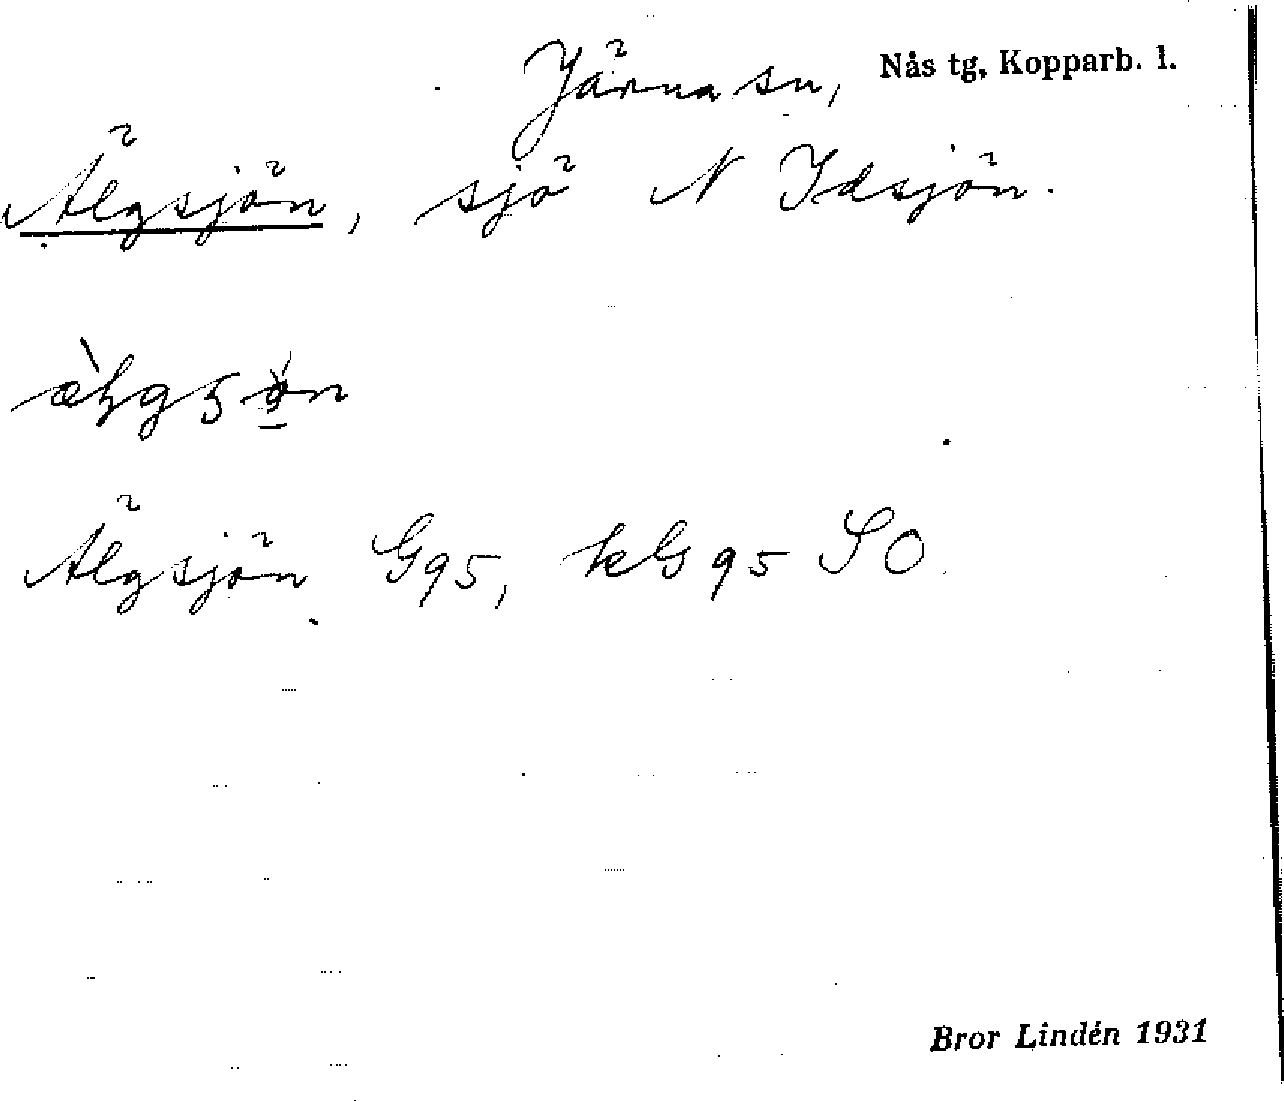 Järna sn, Nås tg, Kopparb. l.
Älgsjön, sjö N Idsjön.
Älgsjön G95, kG 95 SO
Bror Lindén 1931